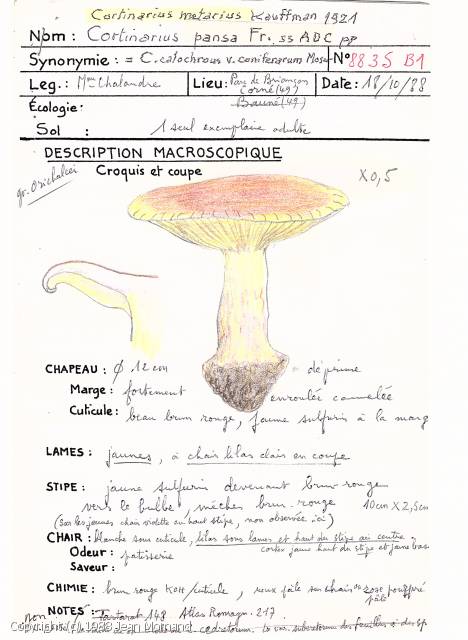 Cortinarius metarius Kauffman 1921
Nom: Cortinarius pansa Fr. ss ADC pp
Synonymie: = C. calochrous v. coniferarum Mos N° 8835 B1
Leg.: Mme Chalandre Lieu: Parc de Briançon Date: 18/10/88
Corné (49)
Bauné (49)
Écologie:
Sol : 1 seul exemplaire adulte
DESCRIPTION MACROSCOPIQUE
gr. Orichalcei
Croquis et coupe
X0,5
CHAPEAU: φ 12 cm déprimé
Marge: fortement enroulée cannelée
Cuticule: beau brun rouge, jaune sulfurin à la marg
LAMES: jaunes, à chair lilas clair en coupe
STIPE: jaune sulfurin devenant brun rouge
vers le bulbe, mèches brun rouge 10cm X 2,5cm
(sur les jeunes chair violette au haut stipe, non observée ici)
CHAIR: blanche sous cuticule, lilas sous lames et haut du stipe au centre
cortex jaune haut du stipe et jaune bas
Odeur: patisserie
Saveur:
CHIMIE: brun rouge KOH/cuticule, sur chair rose pourpré
pâle
NOTES: 148 Atlas Romagn. 217
non
Copyright (c) 1988 Jean Mornand cedretorum